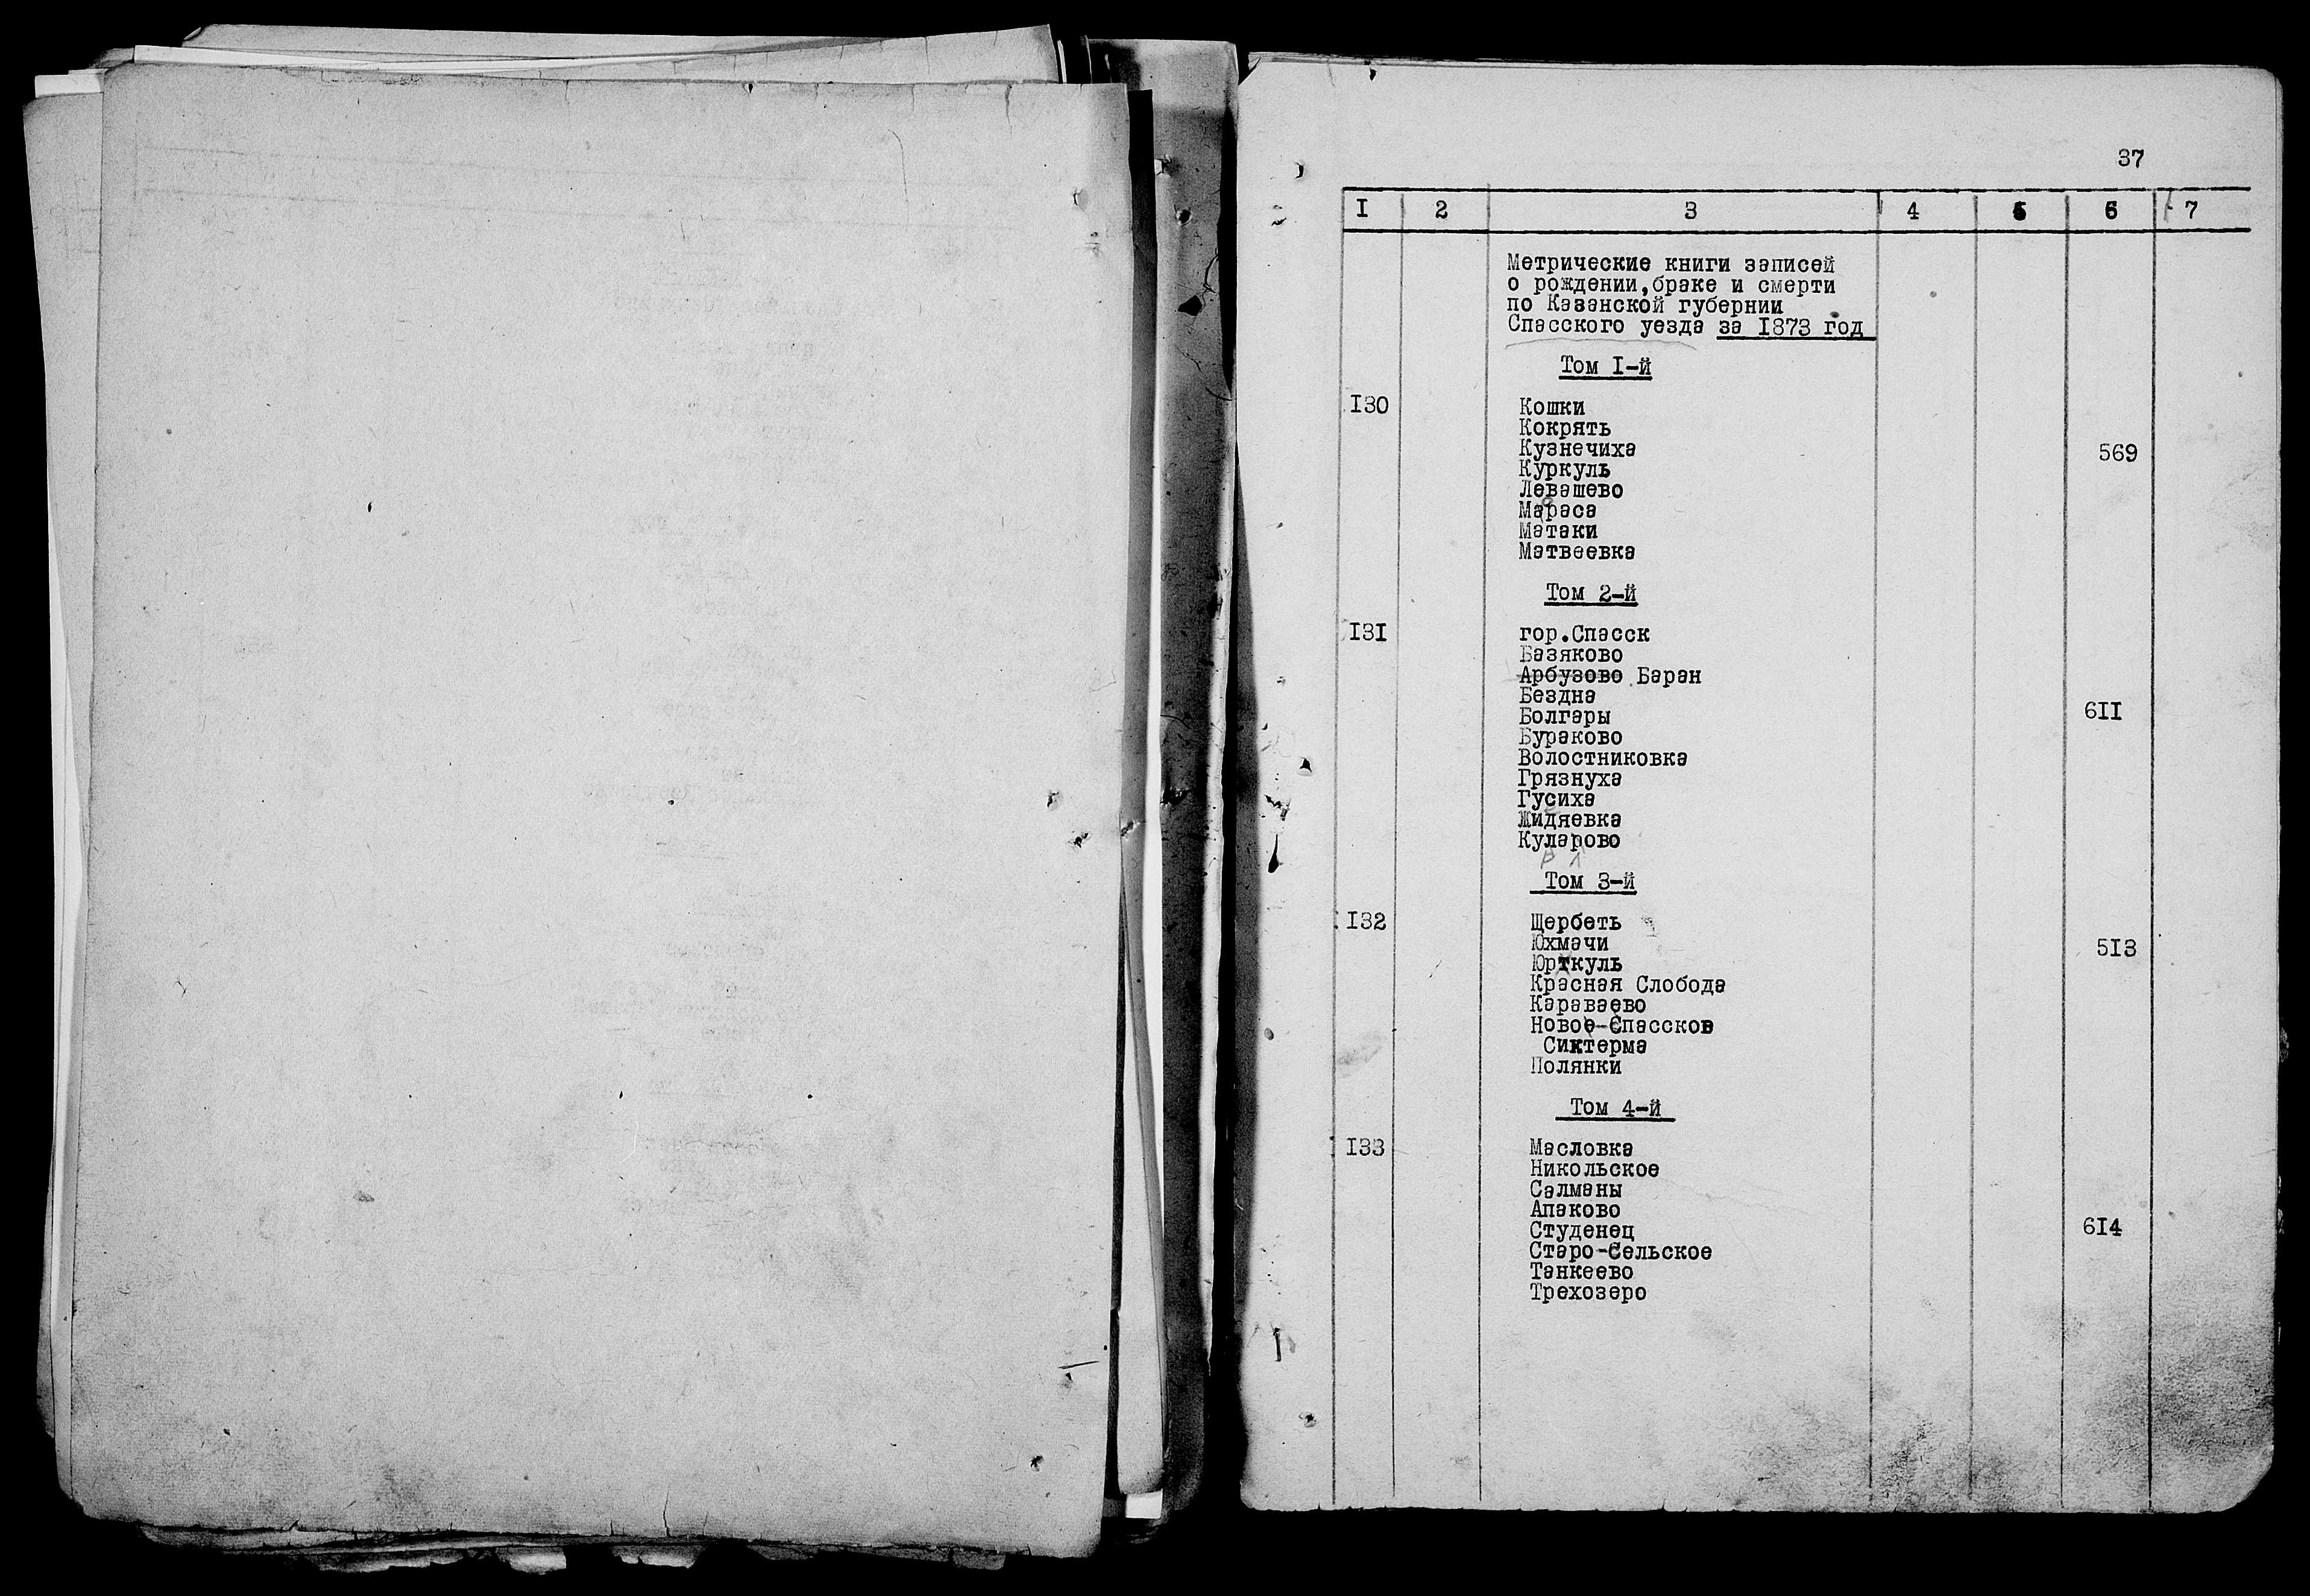 37
I 2 3 4 5 6 7
Метрические книги записей
о рождении,браке и смерти
по Казанской губернии
Спасского уезда за 1873 год
Том I-й
I30 Кошки
Кокрять
Кузнечиха 569
Куркуль
Левашево
Мараса
Матаки
Матвеевка
Том 2-й
I3I гор.Спасск
Базяково
Арбузово Баран
Бездна
Болгары 6II
Бураково
Волостниковка
Грязнуха
Гусиха
Жидяевка
Куларово
Том 3-й
I32 Щербеть
Юхмачи 5I3
Юрткуль
Красная Слобода
Караваево
Новое-Спасское
Сиктерма
Полянки
Том 4-й
I33 Масловка
Никольское
Салманы
Апаково
Студенец 6I4
Старо-Сельское
Танкеево
Трехозеро